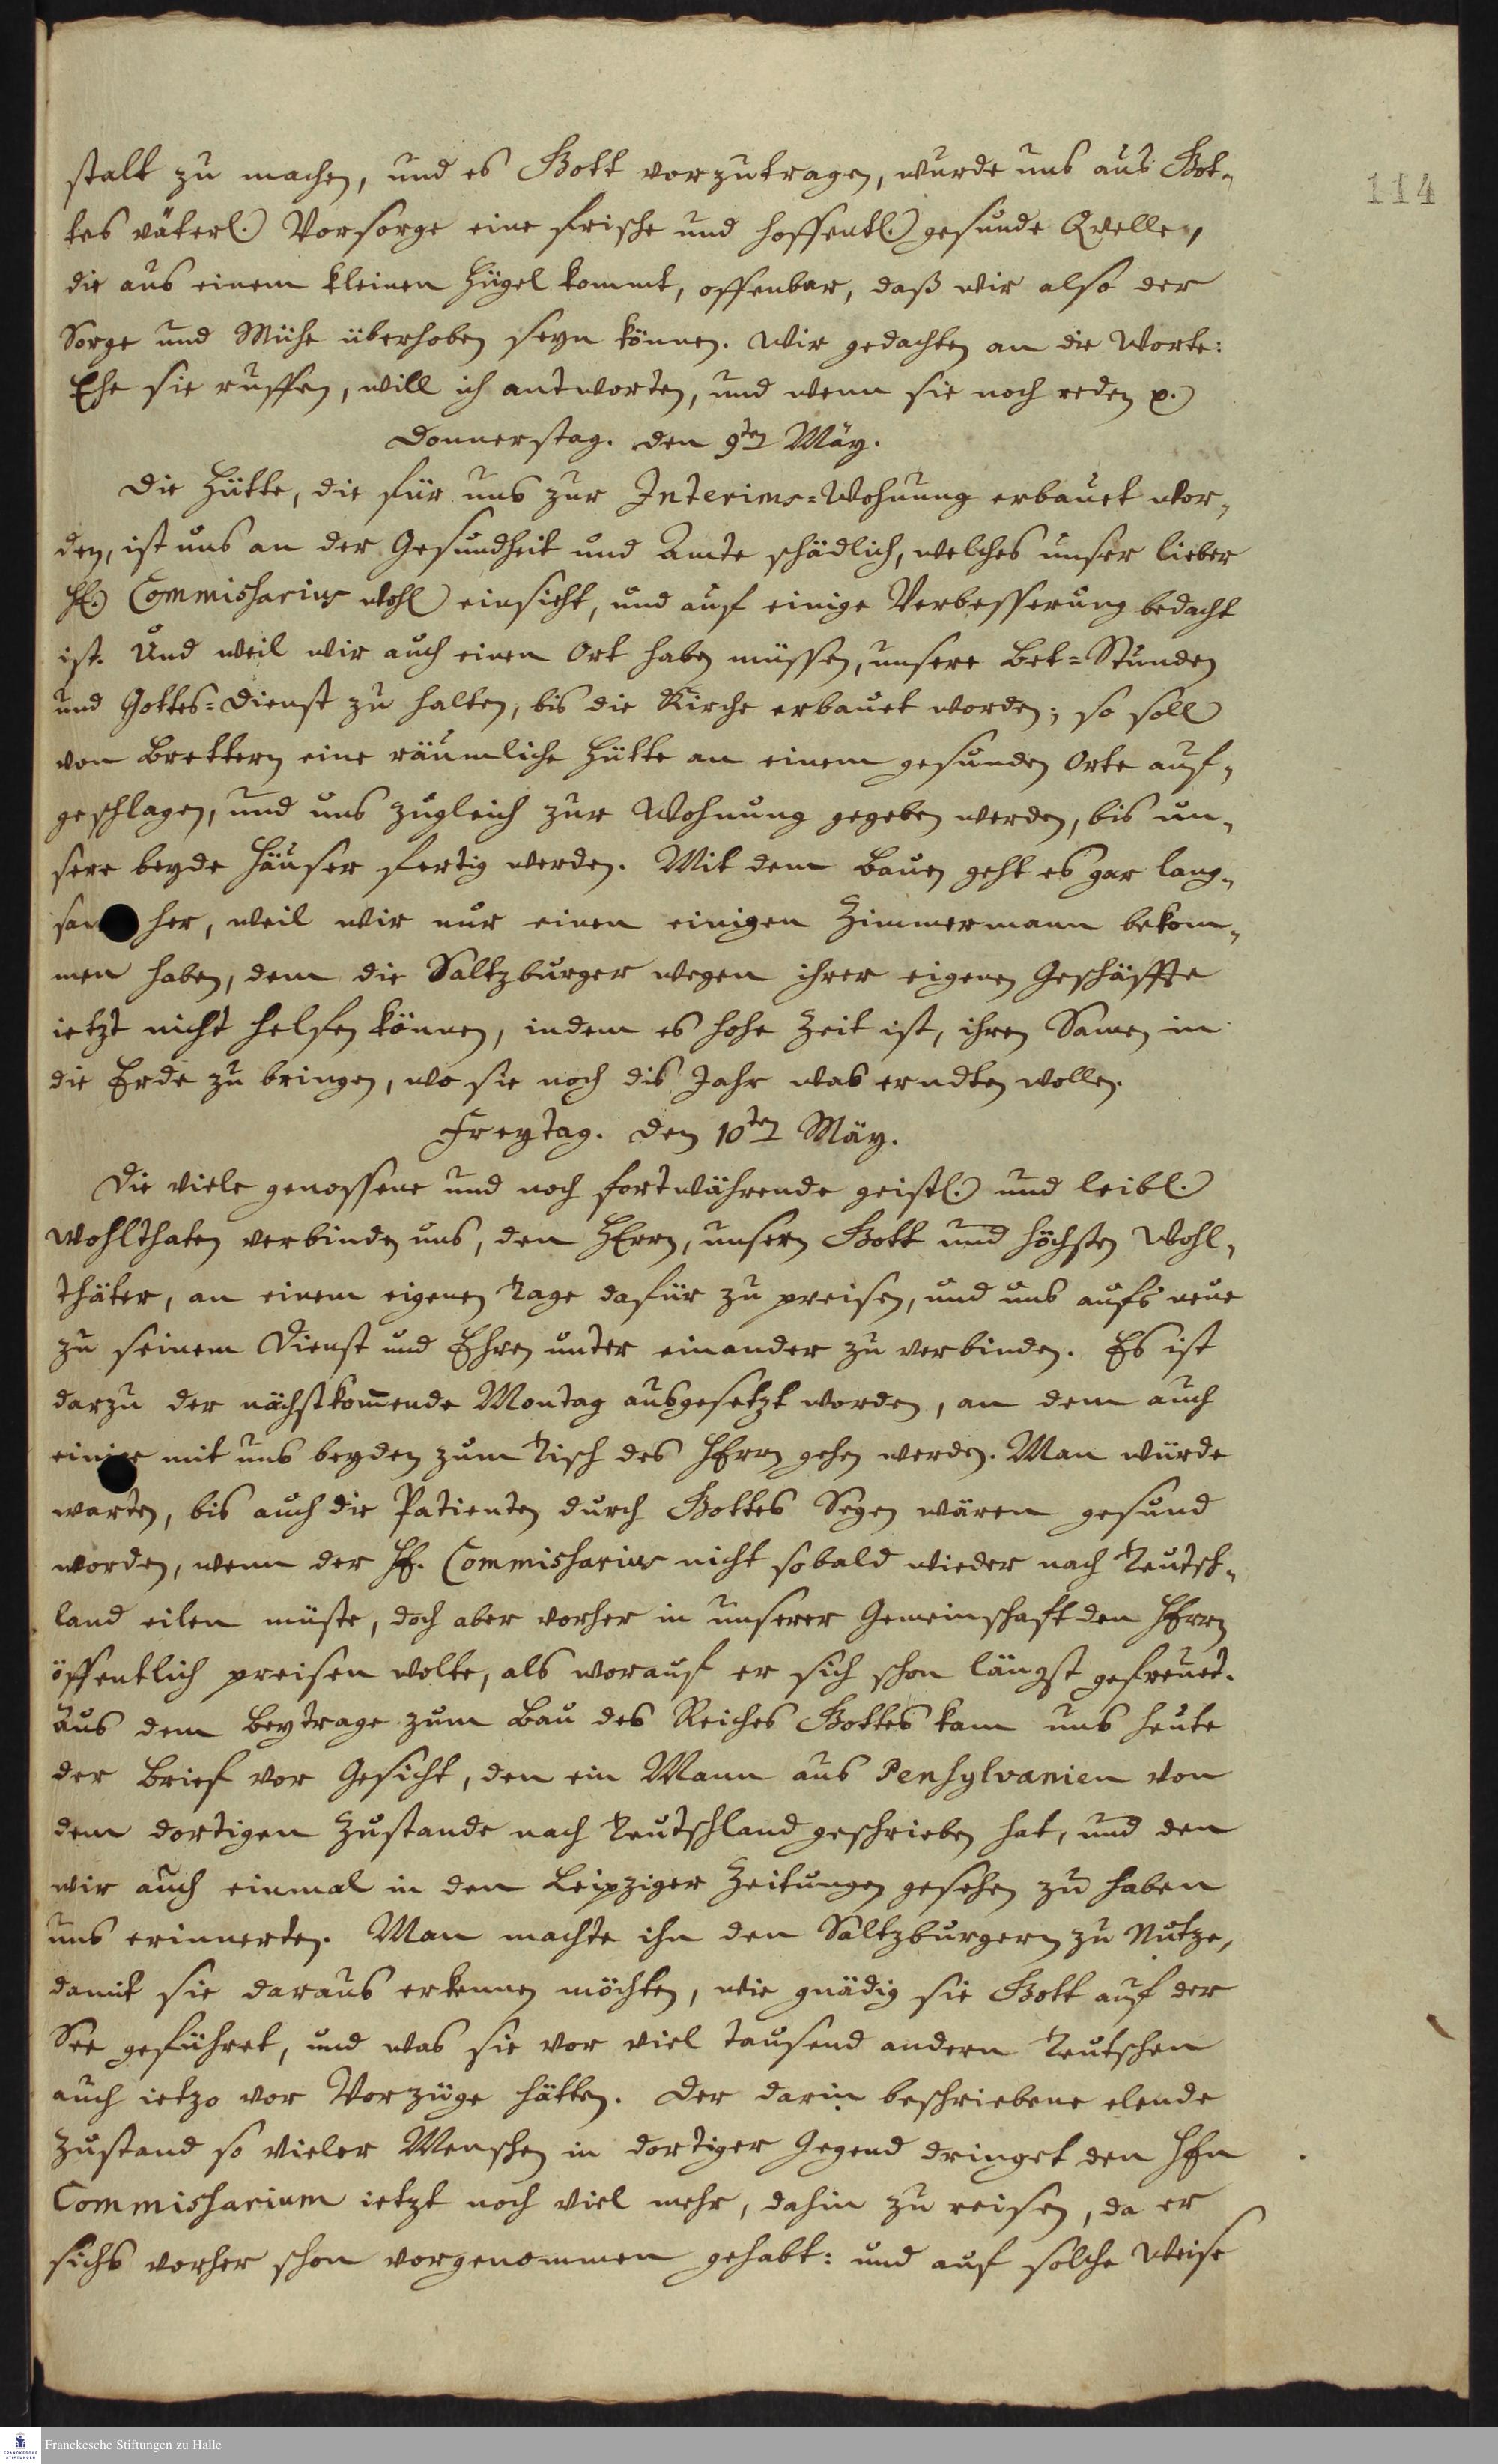 114
stalt zu machen, und es Gott vorzutragen, wurde uns aus Got-
tes väterl. Vorsorge eine frische und hoffentl. gesunde Quelle,
die aus einem kleinen Hügel kommt, offenbar, daß wir also der
Sorge und Mühe überhoben seyn können. Wir gedachten an die Worte:
Ehe sie ruffen, will ich antworten, und wenn sie noch reden p.
Donnerstag. den 9ten Mäy.
Die Hütte, die für uns zur Interims-Wohnung erbauet wor-
den, ist uns an der Gesundheit und Amte schädlich, welches unser lieber
H. Commissarius wohl einsieht, und auf einige Verbesserung bedacht
ist. Und weil wir auch einen Ort haben müssen, unsere Bet-Stunden
und Gottes-Dienst zu halten, bis die Kirche erbauet worden; so soll
von Brettern eine räumliche Hütte an einem gesunden Orte auf-
geschlagen, und uns zugleich zur Wohnung gegeben werden, bis un-
sere beyde Häuser fertig werden. Mit dem Bauen geht es gar lang-
sam her, weil wir nur einen einigen Zimmermann bekom-
men haben, dem die Saltzburger wegen ihrer eigenen Geschäffte
ietzt nicht helfen können, indem es hohe Zeit ist, ihren Samen in
die Erde zu bringen, wo sie noch dis Jahr was erndten wollen.
Freytag. den 10ten Mäy.
Die viele genossene und noch fortwährende geistl. und leibl.
Wohlthaten verbinden uns, den HErrn, unsern Gott und höchsten Wohl-
thäter, an einem eigenen Tage dafür zu preisen, und uns aufs neue
zu seinem Dienst und Ehren unter einander zu verbinden. Es ist
darzu der nächstkom̄ende Montag ausgesetzt worden, an dem auch
einige mit uns beyden zum Tisch des HErrn gehen werden. Man würde
warten, bis auch die Patienten durch Gottes Segen wären gesund
worden, wenn der H. Commissarius nicht sobald wieder nach Teutsch-
land eilen müste, doch aber vorher in unserer Gemeinschaft den HErrn
öffentlich preisen wolte, als worauf er sich schon längst gefreuet.
Aus dem Beytrage zum Bau des Reiches Gottes kam uns heute
der Brief vor Gesicht, den ein Mann aus Pensylvanien von
dem dortigen Zustande nach Teutschland geschrieben hat, und den
wir auch einmal in den Leipziger Zeitungen gesehen zu haben
uns erinnerten. Man machte ihn den Saltzburgern zu Nutze,
damit sie daraus erkennen möchten, wie gnädig sie Gott auf der
See geführet, und was sie vor viel tausend andern Teutschen
auch ietzo vor Vorzüge hätten. Der darin beschriebene elende
Zustand so vieler Menschen in dortiger Gegend dringet den Hrn
Commissarium ietzt noch viel mehr, dahin zu reisen, da er
sichs vorher schon vorgenommen gehabt: und auf solche Weise
FRANCKESCHE STIFTUNGEN
Franckesche Stiftungen zu Halle